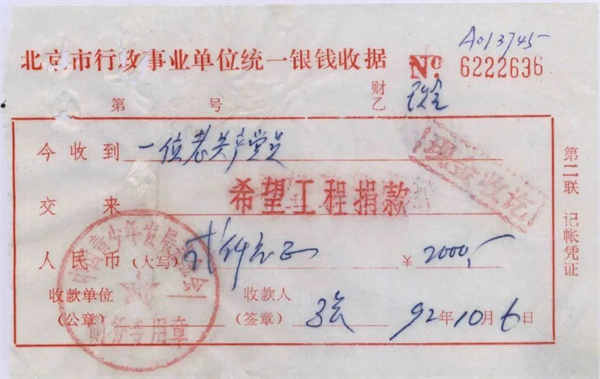 A013745
北京市行政事业单位统一银钱收据 No. 6222636
第 号 财乙
今收到 一位老共产党员
现金收讫
交来 希望工程捐款
人民币(大写) 贰仟元正 ¥ 2000,-
收款单位(公章) 收款人(签章) 92年10月6日
财务专用章
第二联 记帐凭证